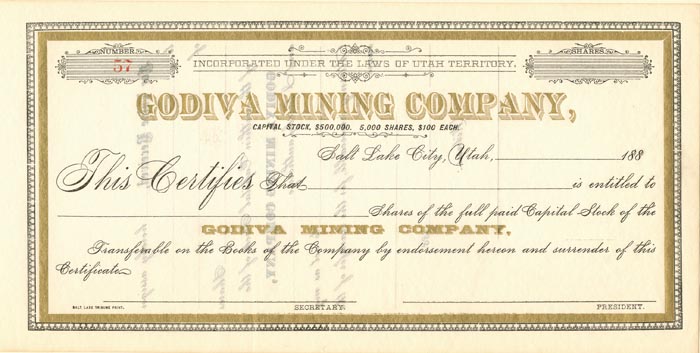 NUMBER
57
SHARES
INCORPORATED UNDER THE LAWS OF UTAH TERRITORY.
GODIVA MINING COMPANY,
CAPITAL STOCK, $500,000. 5,000 SHARES, $100 EACH.
Salt Lake City, Utah, 188
This Certifies That is entitled to
Shares of the full paid Capital Stock of the
GODIVA MINING COMPANY,
Transferable on the Books of the Company by endorsement hereon and surrender of this
Certificate
SALT LAKE TRIBUNE PRINT.
SECRETARY.
PRESIDENT.